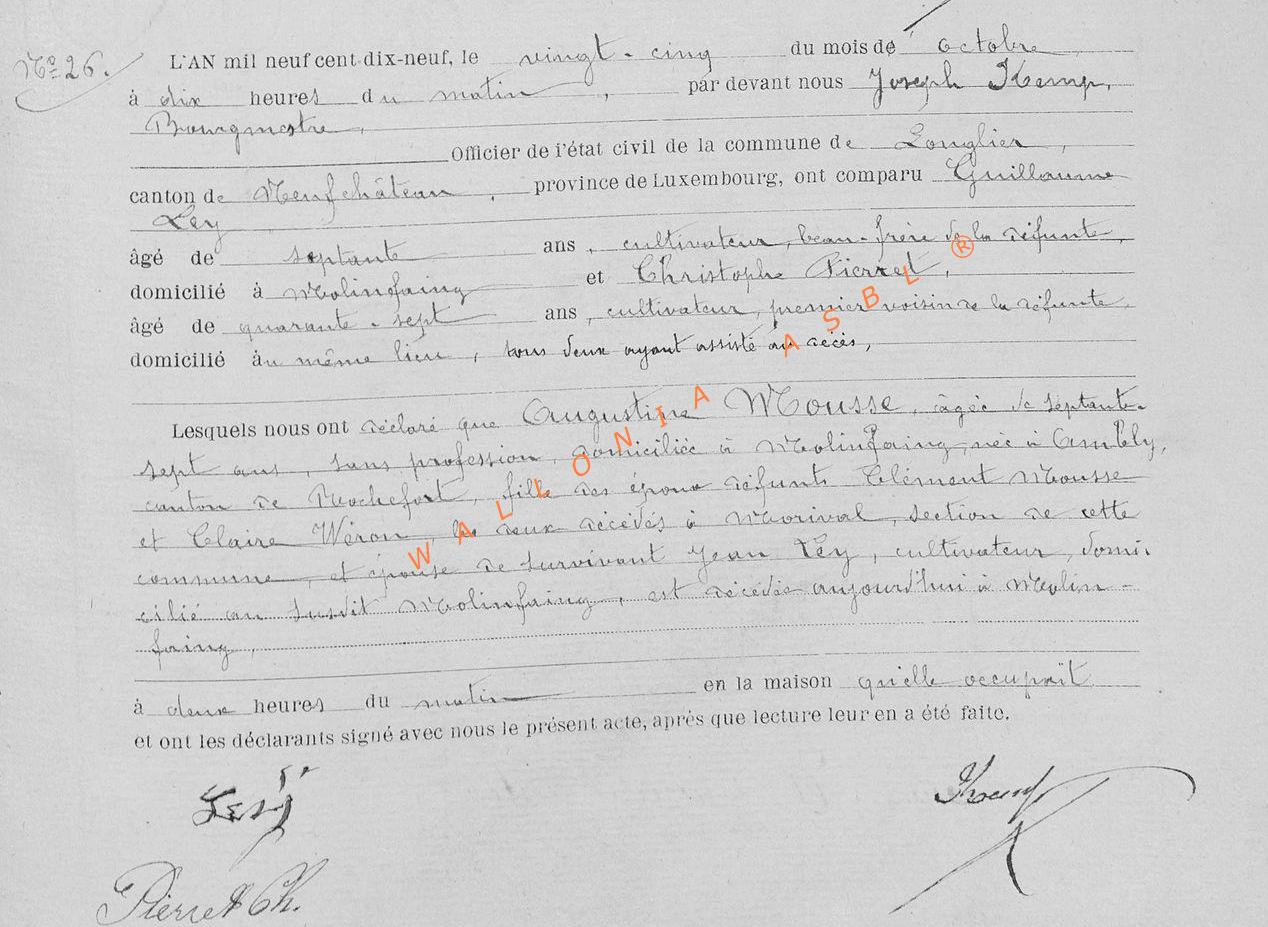 N° 26.
L'AN mil neuf cent dix-neuf, le vingt-cinq du mois de octobre
à dix heures du matin, par devant nous Joseph Kemp,
Bourgmestre,
Officier de l'état civil de la commune de Longlier,
canton de Neufchâteau, province de Luxembourg, ont comparu Guillaume
Ley
âgé de septante ans, cultivateur, beau-frère de la défunte,
domicilié à Molinfaing et Christophe Pierret,
âgé de quarante-sept ans, cultivateur, premier voisin de la défunte
domicilié au même lieu, tous deux ayant assisté au décès,
Lesquels nous ont déclaré que Augustine Mousse, âgée de septante-
sept ans, sans profession, domiciliée à Molinfaing, née à Ambly,
canton de Rochefort, fille des époux défunts Clément Mousse
et Claire Wéron, les deux décédés à Morival, section de cette
commune, et épouse de survivant Jean Léy, cultivateur, domi-
cilié au susdit Molinfaing, est décédée aujourd'hui à Molin-
faing,
à deux heures du matin en la maison qu'elle occupait
et ont les déclarants signé avec nous le présent acte, après que lecture leur en a été faite.
Ley
Kemp
Pierret Ch.
WALLONIA ASBL ®